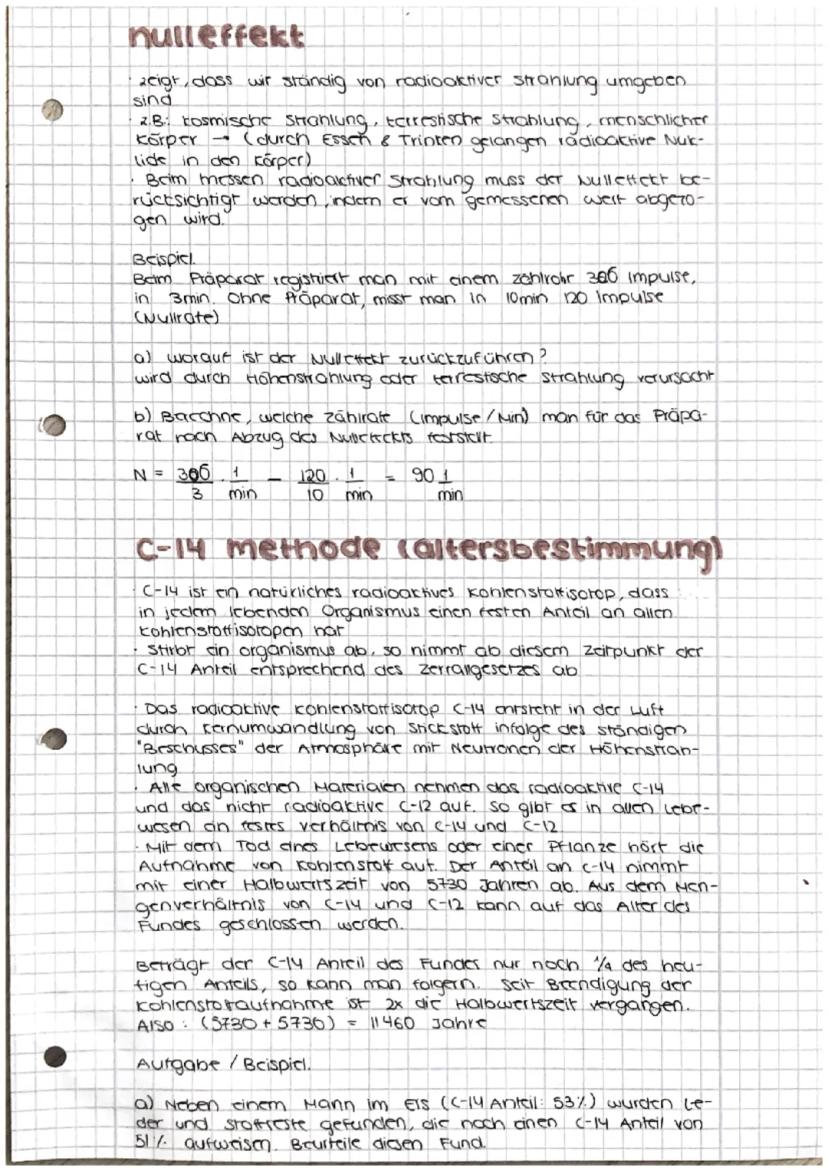 nulleffekt
· zeigt, dass wir ständig von radioaktiver Strahlung umgeben
sind
· z.B.: kosmische Strahlung, terrestische Strahlung, menschlicher
Körper → (durch Essen & Trinken gelangen radioaktive Nuk-
lide in den Körper)
· Beim messen radioaktiver Strahlung muss der Nulleffekt be-
rücksichtigt werden, indem er vom gemessenen wert abgezo-
gen wird.
Beispiel.
Beim Präparat registriert man mit einem Zählrohr 306 Impulse,
in 3min. Ohne Präparat, misst man in 10min 120 Impulse
(Nullrate)
a) worauf ist der Nulleffekt zurückzuführen?
wird durch Höhenstrahlung oder terrestische Strahlung verursacht
b) Berechne, welche Zählrate (Impulse/Min) man für das Präpa-
rat nach Abzug des Nulleffekts feststellt
N = 306/3 · 1/min - 120/10 · 1/min = 90 1/min
C-14 methode (altersbestimmung)
· C-14 ist ein natürliches radioaktives Kohlenstoffisotop, dass
in jedem lebenden Organismus einen festen Anteil an allen
Kohlenstoffisotopen hat
· Stirbt ein organismus ab, so nimmt ab diesem Zeitpunkt der
C-14 Anteil entsprechend des Zerfallgesetzes ab
· Das radioaktive Kohlenstoffisotop C-14 entsteht in der Luft
durch Kernumwandlung von Stickstoff infolge des ständigen
"Beschusses" der Atmosphäre mit Neutronen der Höhenstrah-
lung
· Alle organischen Materialen nehmen das radioaktive C-14
und das nicht radioaktive C-12 auf. So gibt es in allen Lebe-
wesen ein festes Verhältnis von C-14 und C-12
· Mit dem Tod eines Lebewesens oder einer Pflanze hört die
Aufnahme von Kohlenstoff auf. Der Anteil an C-14 nimmt
mit einer Halbwertszeit von 5730 Jahren ab. Aus dem Men-
genverhältnis von C-14 und C-12 kann auf das Alter des
Fundes geschlossen werden.
Beträgt der C-14 Anteil des Fundes nur noch 1/4 des heu-
tigen Anteils, so kann man folgern. Seit Beendigung der
Kohlenstoffaufnahme ist 2x die Halbwertszeit vergangen.
Also: (5730 + 5730) = 11460 Jahre
Aufgabe / Beispiel.
a) Neben einem Mann im Eis (C-14 Anteil: 53%) wurden Le-
der und Stoffreste gefunden, die noch einen C-14 Anteil von
51% aufweisen. Beurteile diesen Fund.